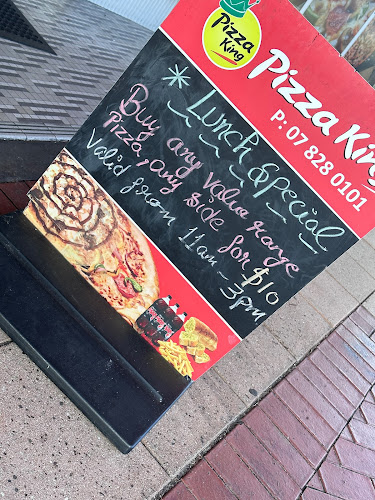 Pizza
King
Pizza King
P: 07 828 0101
* Lunch Special
Buy any value range
Pizza, any side for $10
Valid from 11am - 3pm